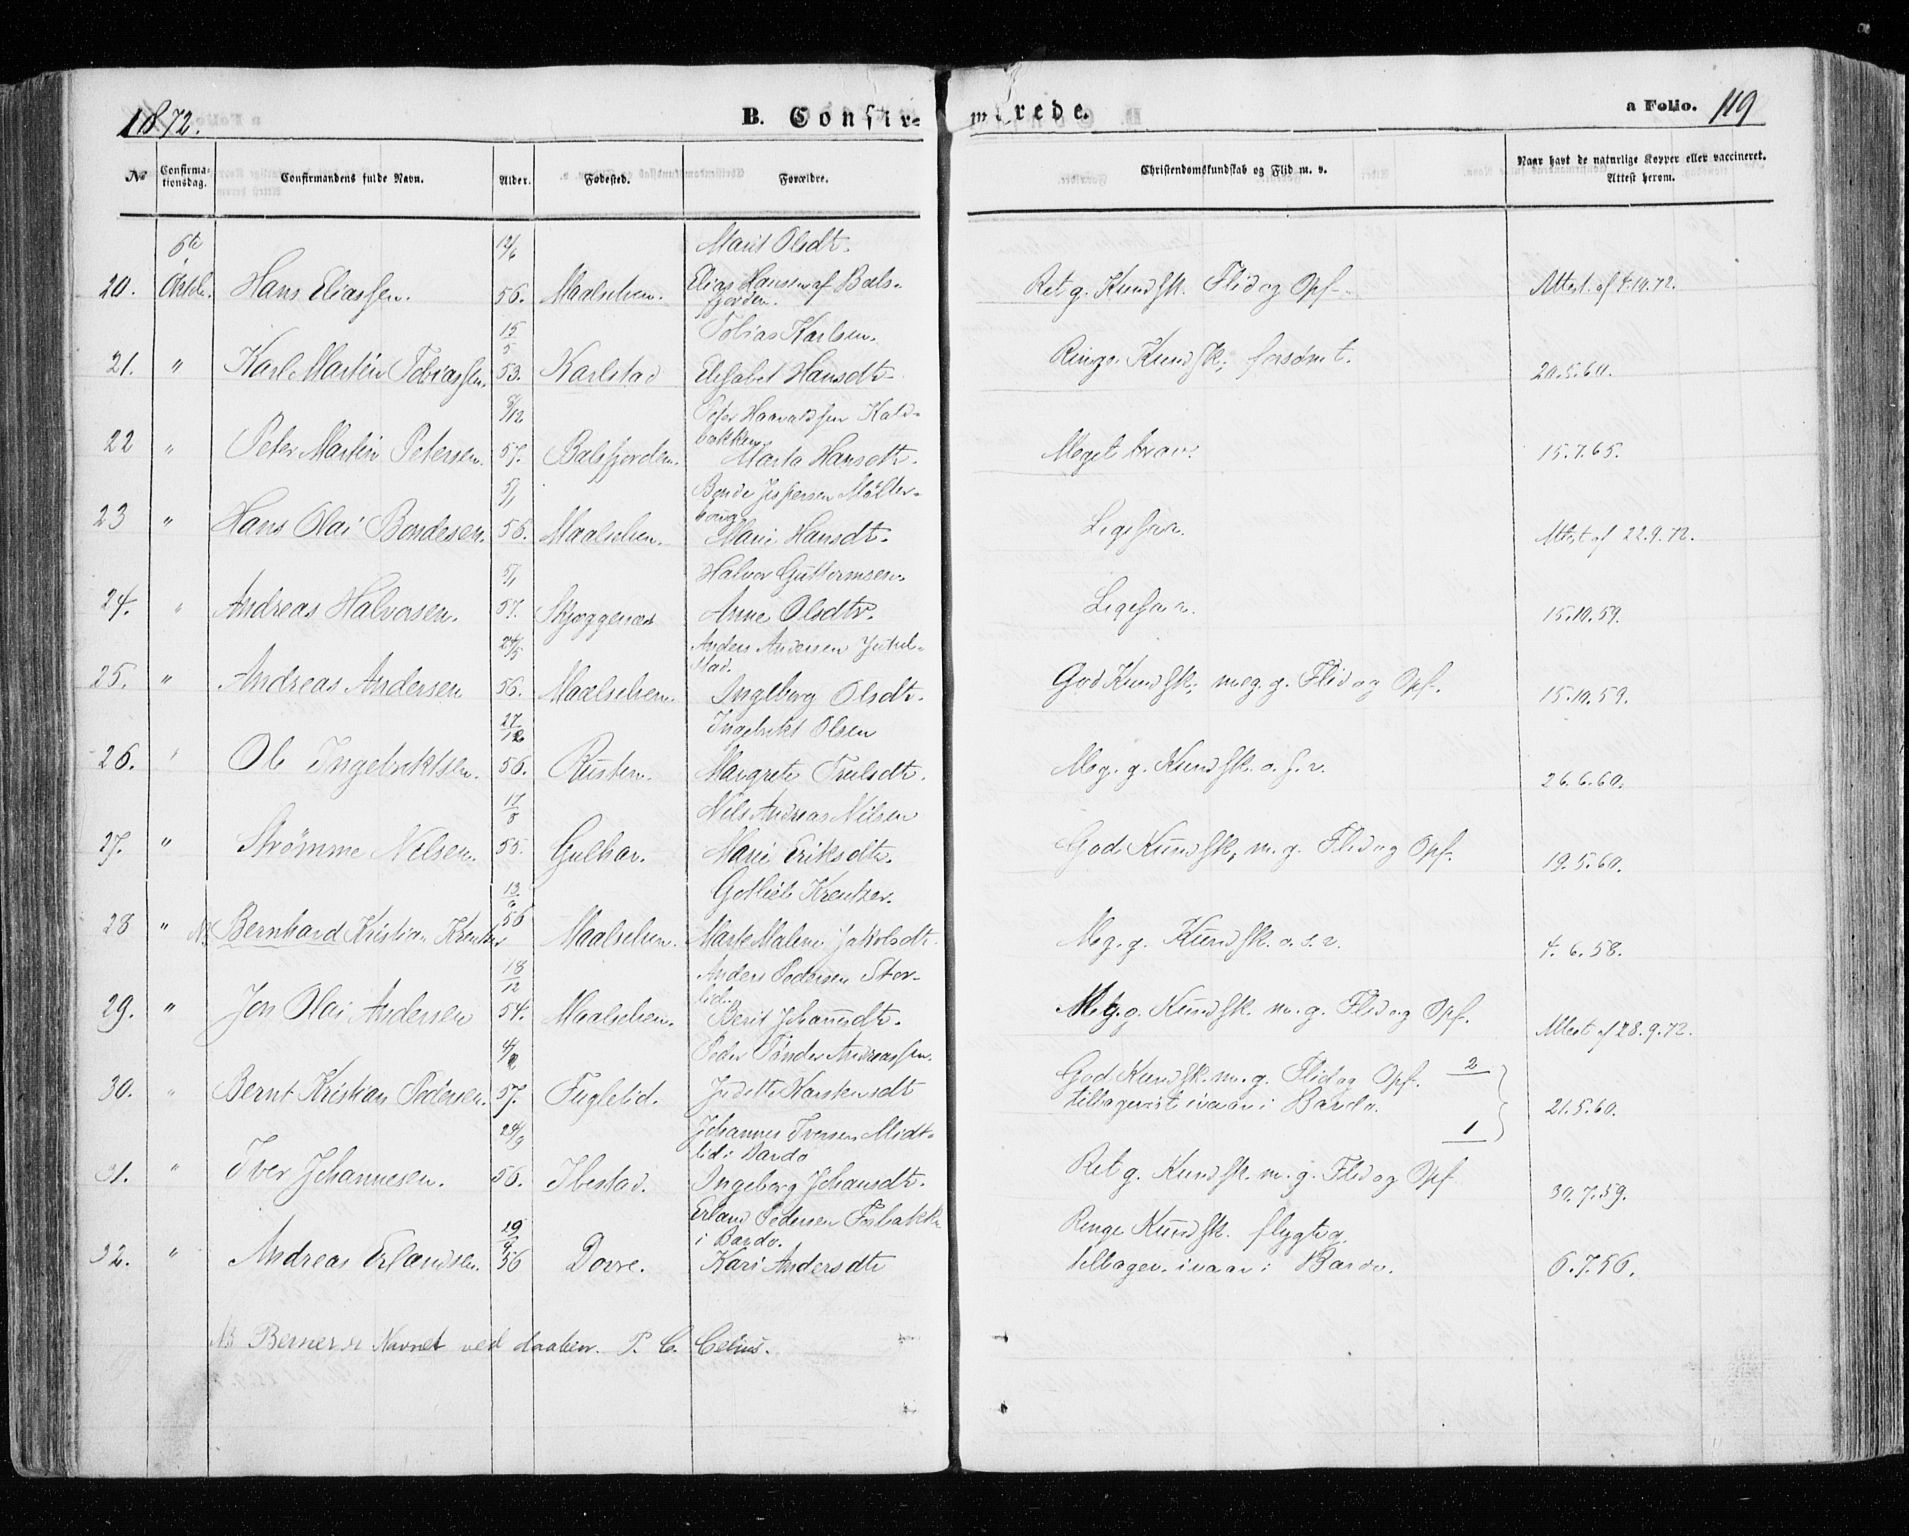 1872. B. Confirmerede. a Folio. 119
No Confirmationsdag. Confirmandens fulde Navn. Alder. Fødested. Forældre. Christendomskundskab og Flid m. v. Naar havt de naturlige Kopper eller vaccineret. Attest herom.
6te 12/6 Marit Olsdtr.
20. Octob. Hans Eliassen. 56. Maalselven. Elias Hansen af Balsfjorden. Ret g. Kundsk. Flid og Opf. Attest af 4.10.72.
15/5 Tobias Karlsen.
21. " Karl Martin Tobiassen. 53. Karlstad Elisabet Hansdtr. Ringe Kundsk; forsømt. 20.5.60.
Peter Haavaldsen Kaldbakken
22 " Peter Martin Petersen. 57. Balsfjorden. Marta Hansdtr. Meget brav. 15.7.65.
5/1 Bonde Jespersen Møllerhaug
23 " Hans Olai Bondesen. 56. Maalselven. Marie Hansdtr. Ligesaa. Attest af 22.9.72.
5/1 Halvor Guttormsen
24. " Andreas Halvorsen. 57. Skjæggenæs Anne Olsdtr. Ligesaa. 15.10.59.
24/5 Anders Andersen Jutulstad.
25. " Andreas Andersen 56. Maalselven. Ingeborg Olsdtr. God Kundsk; meg. g. Flid og Opf. 15.10.59.
27/12 Ingebrikt Olsen
26. " Ole Ingebriktsen. 56. Rusten. Margrete Trulsdtr. Meg. g. Kundsk. o.s.v. 26.6.60.
17/8 Nels Andreas Nilsen
27. " Strømme Nelsen. 55. Gulhav. Marie Eriksdtr. God Kundsk, m. g. Flid og Opf. 19.5.60.
Gotlieb Krentzer.
28 " NB Bernhard Kristian 56 Maalselven. Malene Jakobsdtr. Meg. g. Kundsk. o.s.v. 4.6.58.
18/12 Anders Pedersen Storlid.
29. " Jon Olai Andersen 54. Maalselven. Berit Johansdtr. Meg. g. Kundsk. m. g. Flid og Opf. Attest af 28.9.72.
Peder Tønder Andreassen.
30. " Bernt Kristian Pedersen. 57. Fuglelid. Karstensdtr God Kundsk. m. g. Flid og Opf. 2
tilbagevist ivaar i Bardo. 21.5.60.
24/9 Johannes Iversen Midtlid i Bardo 1
31. " Iver Johannesen. 56. Ibestad. Ingeborg Johansdtr. Ret g. Kundsk. m. g. Flid og Opf 30.7.59.
Erland Pedersen Fosbakk i Bardo. Ringe Kundsk. flygtig.
32. " Andreas Erlandsen. 56 Dovre. Kari Andersdtr tilbagev. ivaar i Bardo. 6.7.56.
NB Berner er Navnet ved daaben. P. C. Celius.